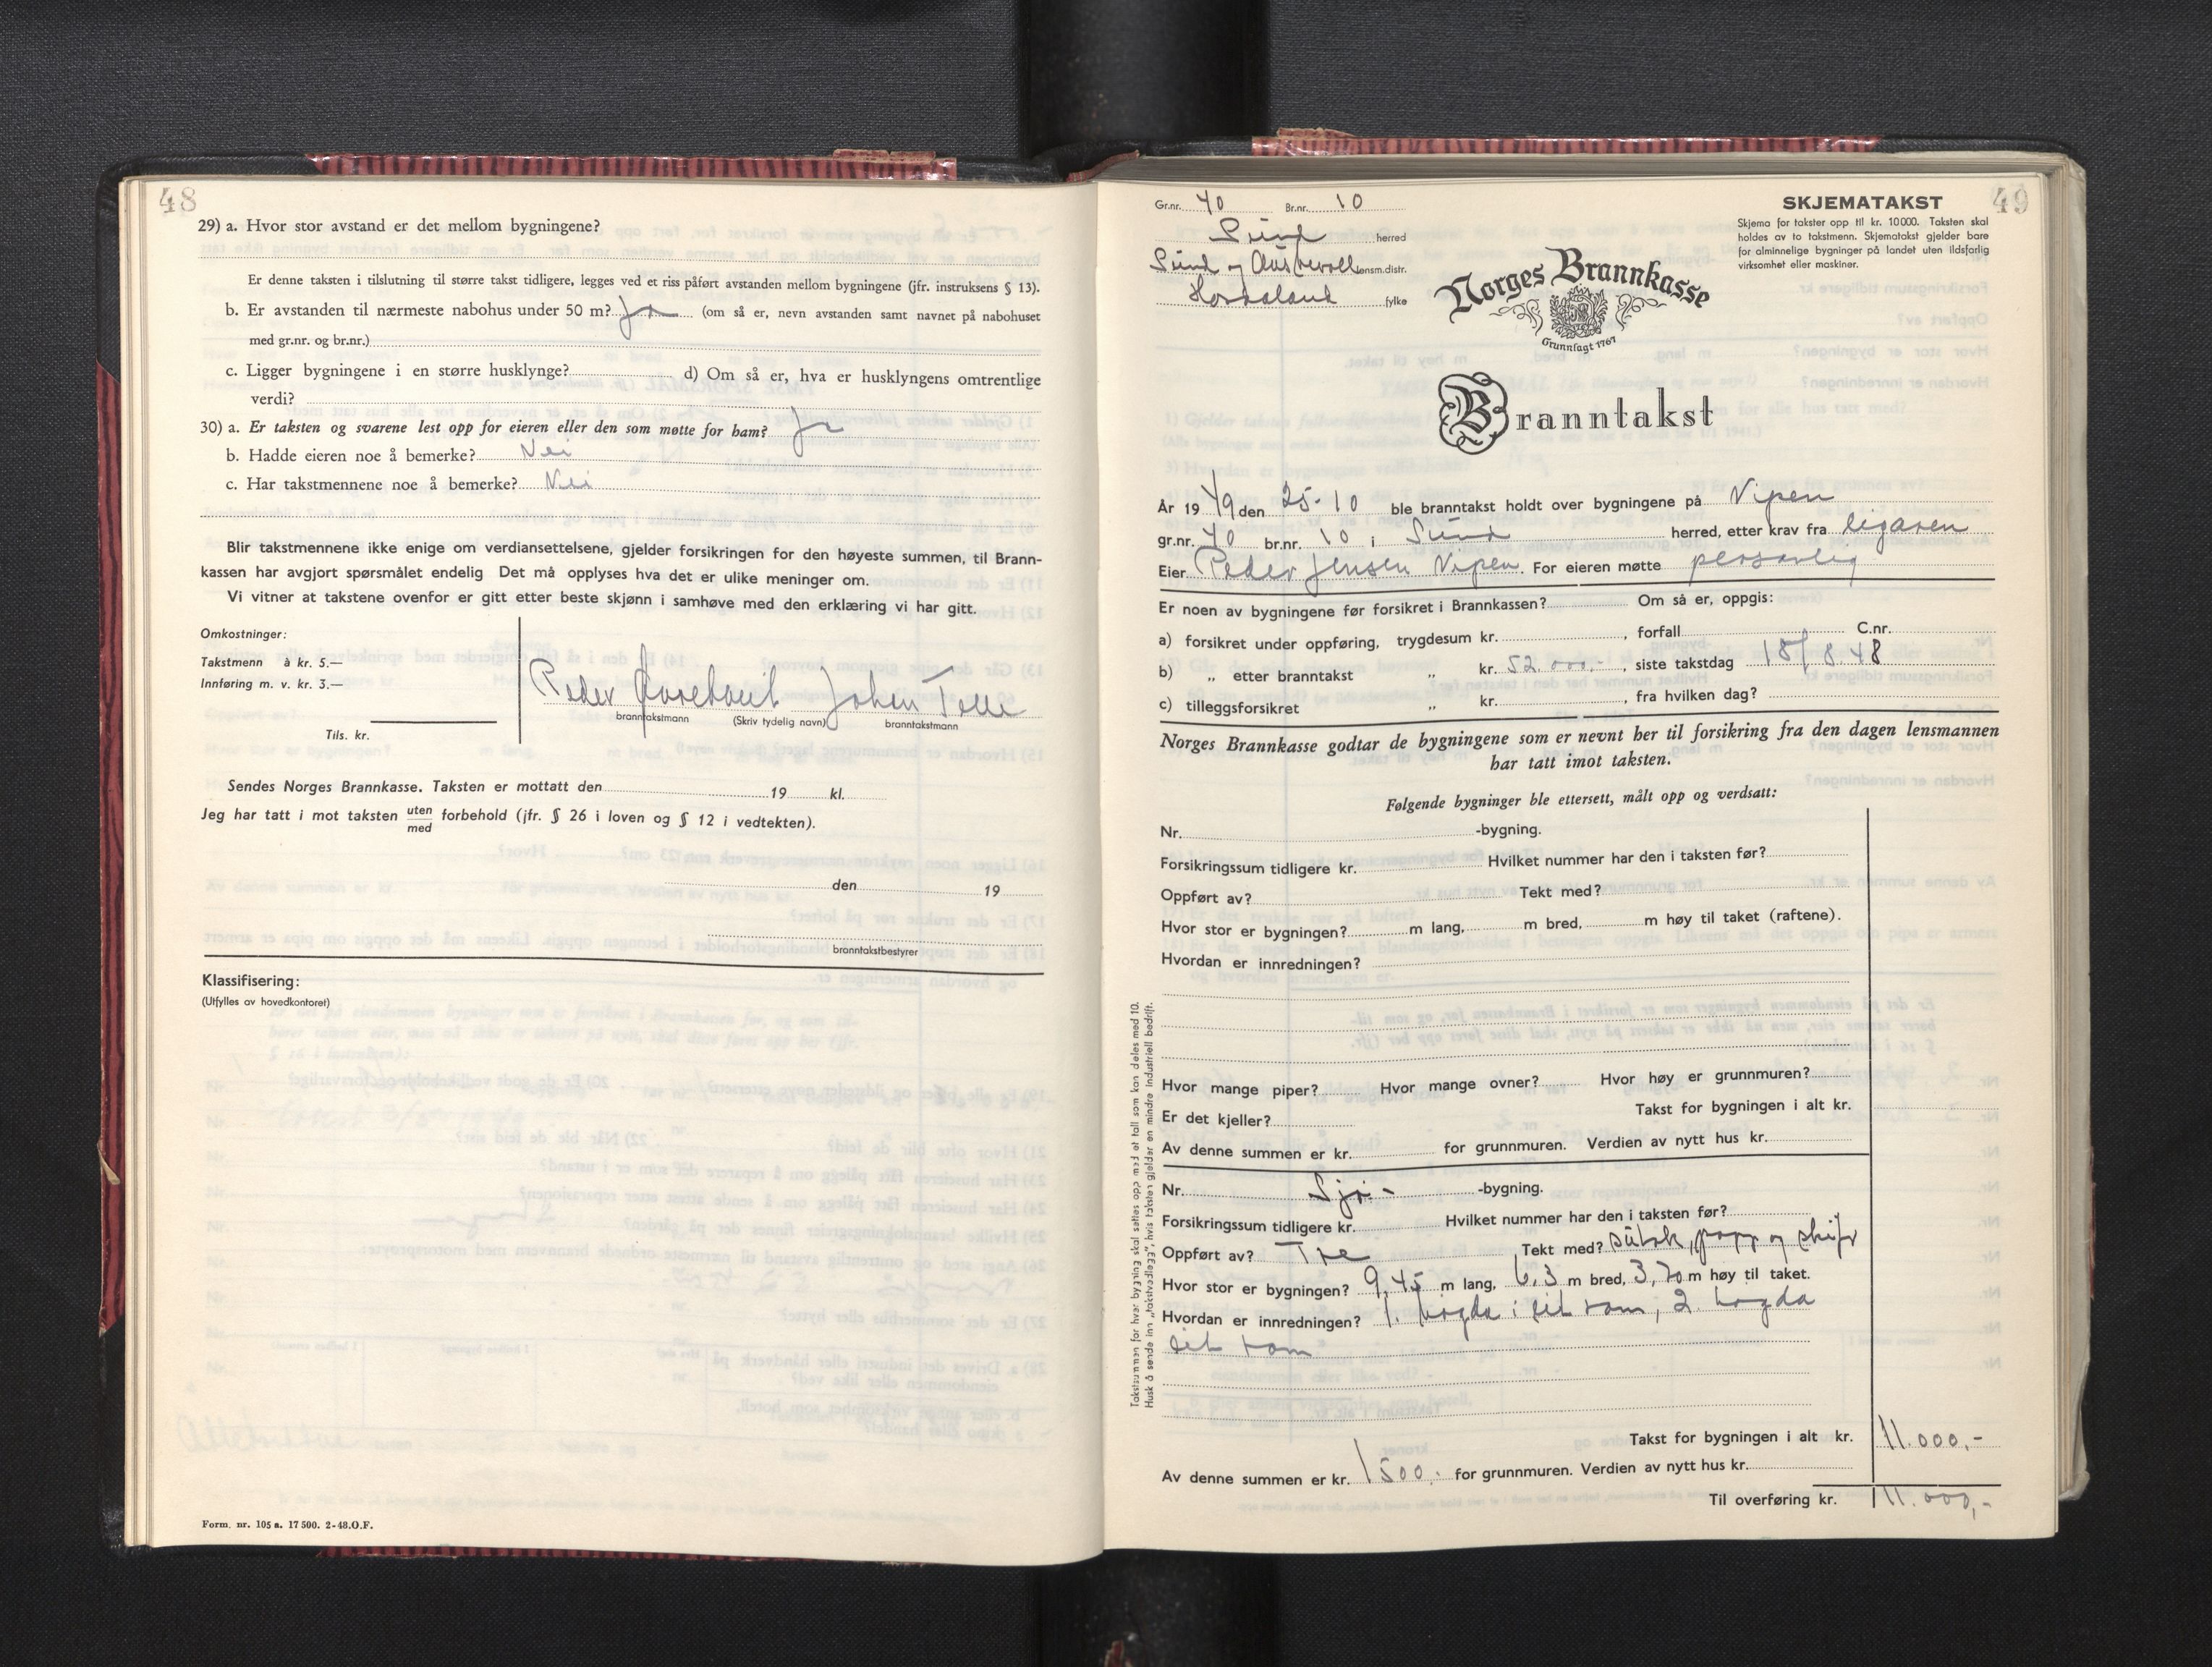 48
29) a. Hvor stor avstand er det mellom bygningene?
Er denne taksten i tilslutning til større takst tidligere, legges ved et riss påført avstanden mellom bygningene (jfr. instruksens § 13).
b. Er avstanden til nærmeste nabohus under 50 m? Ja (om så er, nevn avstanden samt navnet på nabohuset
med gr.nr. og br.nr.)
c. Ligger bygningene i en større husklynge? d) Om så er, hva er husklyngens omtrentlige
verdi?
30) a. Er taksten og svarene lest opp for eieren eller den som møtte for ham? Ja
b. Hadde eieren noe å bemerke? Nei
c. Har takstmennene noe å bemerke? Nei
Blir takstmennene ikke enige om verdiansettelsene, gjelder forsikringen for den høyeste summen, til Brann-
kassen har avgjort spørsmålet endelig Det må opplyses hva det er ulike meninger om.
Vi vitner at takstene ovenfor er gitt etter beste skjønn i samhøve med den erklæring vi har gitt.
Omkostninger:
Takstmenn à kr. 5.—
Innføring m. v. kr. 3.—
Tils. kr.
Peder Johan Telle
branntakstmann (Skriv tydelig navn) branntakstmann
Sendes Norges Brannkasse. Taksten er mottatt den 19 kl.
Jeg har tatt i mot taksten uten
med forbehold (jfr. § 26 i loven og § 12 i vedtekten).
den 19
branntakstbestyrer
Klassifisering:
(Utfylles av hovedkontoret)
Form. nr. 105 a. 17 500. 2-48.O.F.
49
Gr.nr. 40 Br.nr. 10
Sund herred
Sund og Austevoll lensm.distr.
Hordaland fylke
SKJEMATAKST
Skjema for takster opp til kr. 10000. Taksten skal
holdes av to takstmenn. Skjematakst gjelder bare
for alminnelige bygninger på landet uten ildsfarlig
virksomhet eller maskiner.
Norges Brannkasse
Grunnlagt 1767
Branntakst
År 1949 den 25-10 ble branntakst holdt over bygningene på Vipen
gr.nr. 40 br.nr. 10 i Sund herred, etter krav fra eigaren
Eier Peder Jensen Vipen. For eieren møtte personlig
Er noen av bygningene før forsikret i Brannkassen? Om så er, oppgis:
a) forsikret under oppføring, trygdesum kr. , forfall C.nr.
b) „ etter branntakst „ kr. 52.000.- , siste takstdag 18/8.48
c) tilleggsforsikret „ kr. , fra hvilken dag?
Norges Brannkasse godtar de bygningene som er nevnt her til forsikring fra den dagen lensmannen
har tatt imot taksten.
Følgende bygninger ble ettersett, målt opp og verdsatt:
Nr. -bygning.
Forsikringssum tidligere kr. Hvilket nummer har den i taksten før?
Oppført av? Tekt med?
Hvor stor er bygningen? m lang, m bred, m høy til taket (raftene).
Hvordan er innredningen?
Hvor mange piper? Hvor mange ovner? Hvor høy er grunnmuren?
Er det kjeller? Takst for bygningen i alt kr.
Av denne summen er kr. for grunnmuren. Verdien av nytt hus kr.
Nr. Sjø- -bygning.
Forsikringssum tidligere kr. Hvilket nummer har den i taksten før?
Oppført av? Tre Tekt med? sutak, papp og skifr
Hvor stor er bygningen? 9,45 m lang, 6,3 m bred, 3,70 m høy til taket.
Hvordan er innredningen? 1. høgda i eit rom, 2 høgda
eit rom
Takst for bygningen i alt kr. 11.000,-
Av denne summen er kr. 1500.- for grunnmuren. Verdien av nytt hus kr.
Til overføring kr. 11.000,-
Takstsummen for hver bygning skal settes opp med et tall som kan deles med 10.
Husk å sende inn „Takstvedlegg", hvis taksten gjelder en mindre industriell bedrift.